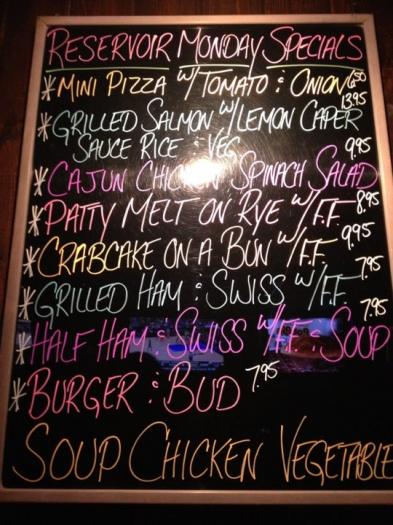 RESERVOIR MONDAY SPECIALS
* MINI PIZZA W/ TOMATO & ONION 6.50
* GRILLED SALMON W/ LEMON CAPER 13.95
SAUCE RICE & VEG
* CAJUN CHICKEN SPINACH SALAD 9.95
* PATTY MELT ON RYE W/ F.F. 8.95
* CRABCAKE ON A BUN W/ F.F. 9.95
* GRILLED HAM & SWISS W/ F.F. 7.95
* HALF HAM & SWISS W/ F.F. & SOUP 7.95
* BURGER & BUD 7.95
SOUP CHICKEN VEGETABLE